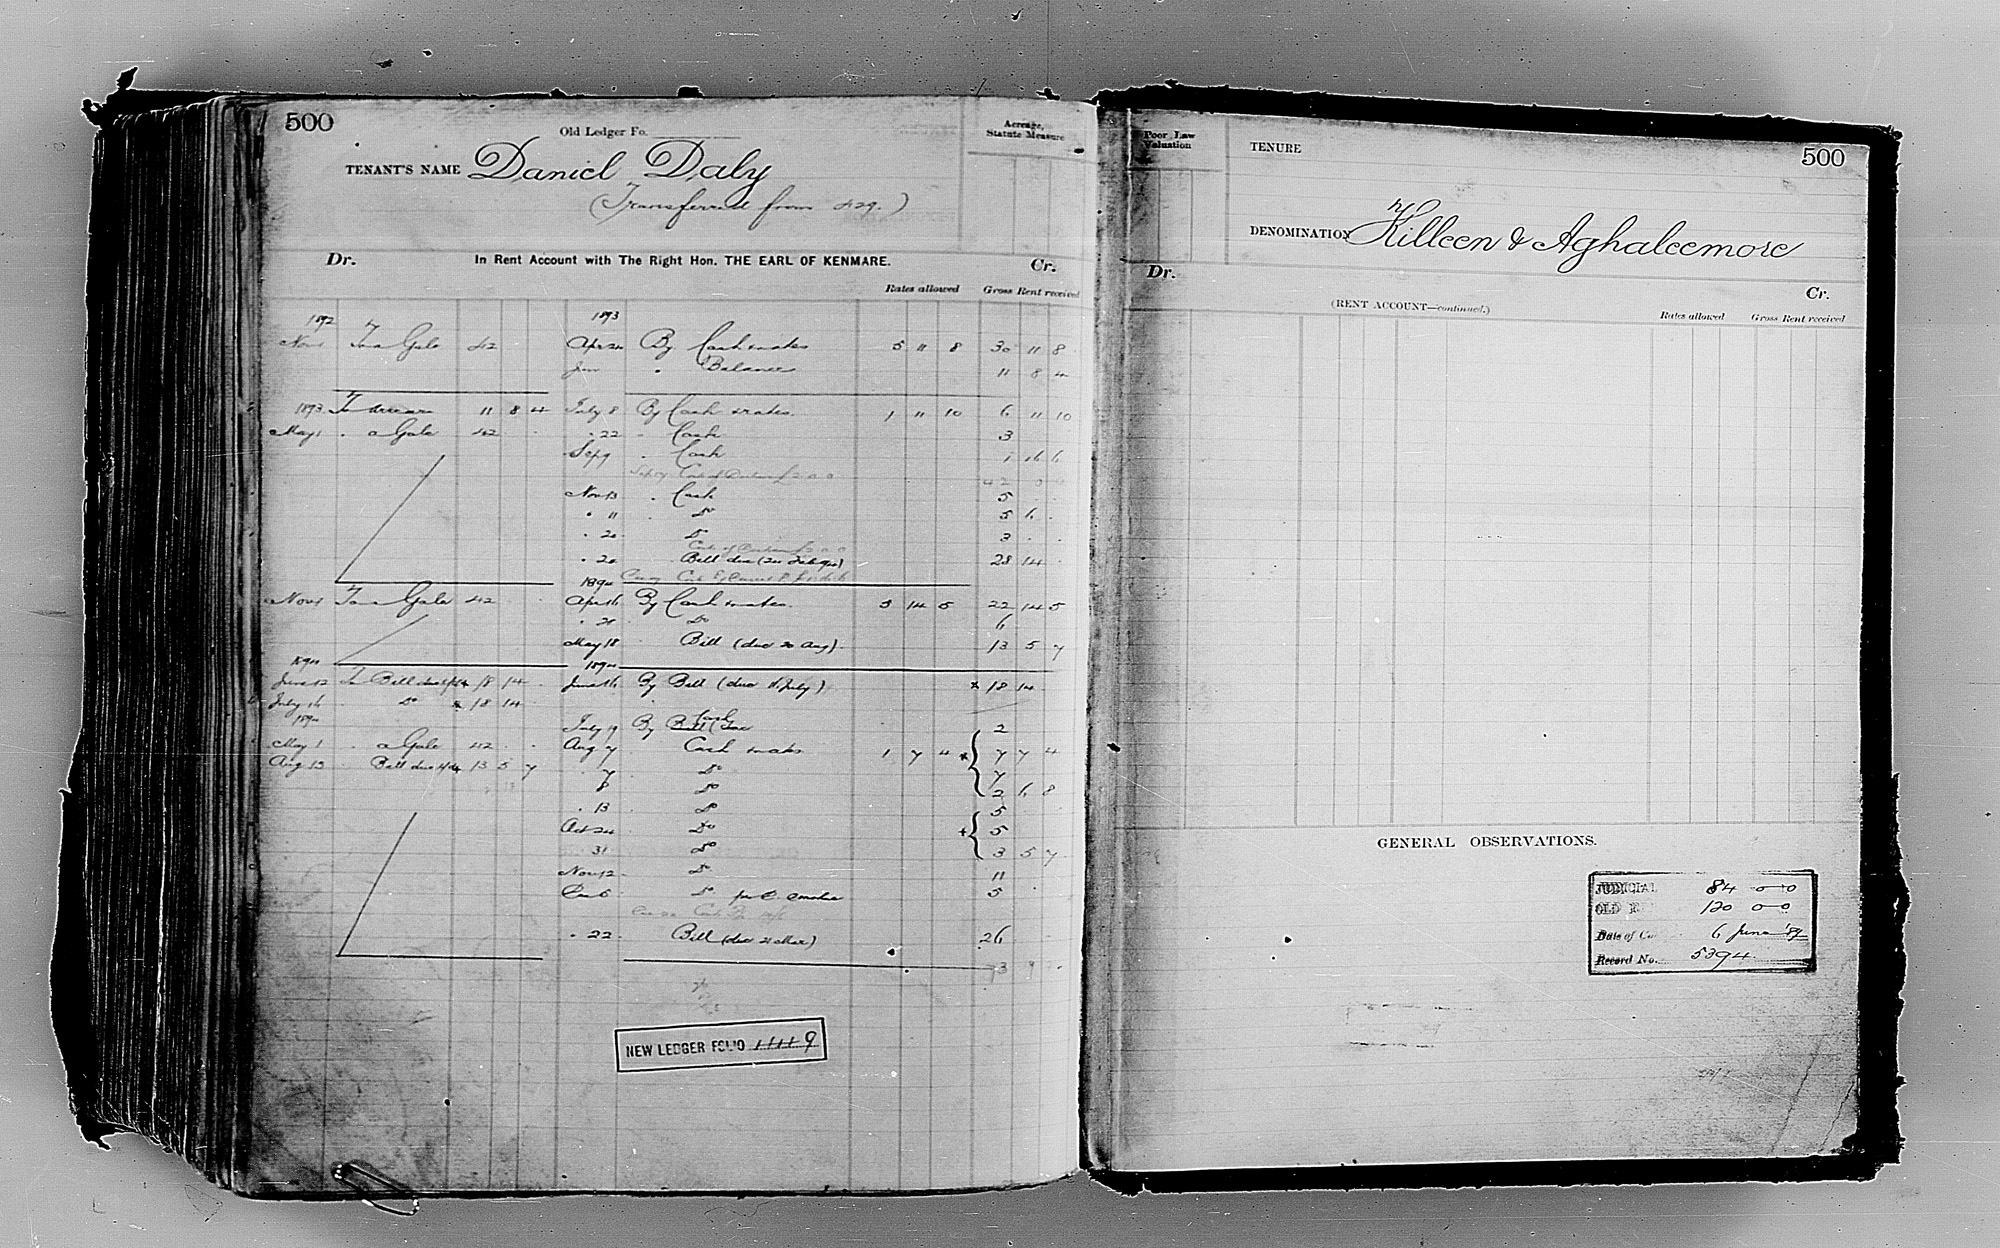 500
Old Ledger Fo.
Acreage, Statute Measure
TENANT'S NAME Daniel Daly
(Transferred from 429.)
Dr. In Rent Account with The Right Hon. THE EARL OF KENMARE. Cr.
Rates allowed Gross Rent received
1892 1893
Nov 1 To a Gale 42 Apr 24 By Cash & rates 5 11 8 30 11 8
Jun " Balance 11 8 4
1893 To arrears 11 8 4 July 8 By Cash & rates. 1 11 10 6 11 10
May 1 . a Gale 42 . 22 . Cash 3
Sep 9 . Cash 1 16 6
Nov 13 . Cash 5
. 11 Do 5 6
. 20 Do 3
. 20 Bill due (20 Feb 94) 28 14
1894
Nov 1 To a Gale 42 Apr 16 By Cash & rates. 5 14 5 22 14 5
Do 6
May 18 Bill (due 20 Aug) 13 5 7
1894 1894
June 12 To Bill due 18 14 June 16 By Bill (due July) x 18 14
July 16 Do x 18 14
1894
July 19 By Bill Cash 2
May 1 . a Gale 42 Aug 7 Cash & rates 1 7 4 x 7 7 4
Aug 13 Bill due 13 5 7 7 Do 7
8 Do 2 6 8
. 13 Do 5
Oct 24 Do + 5
31 Do 3 5 7
Nov 12 Do 11
Dec 6 Do 5
. 22 Bill (due 21 Mar) 26
NEW LEDGER FOLIO 9
Poor Law Valuation
TENURE
500
DENOMINATION Killeen & Aghaleemore
Dr. Cr.
(RENT ACCOUNT—continued.)
Rates allowed Gross Rent received
GENERAL OBSERVATIONS.
JUDICIAL 84 0 0
OLD R 120 0 0
Date of 6 June
Record No. 5394